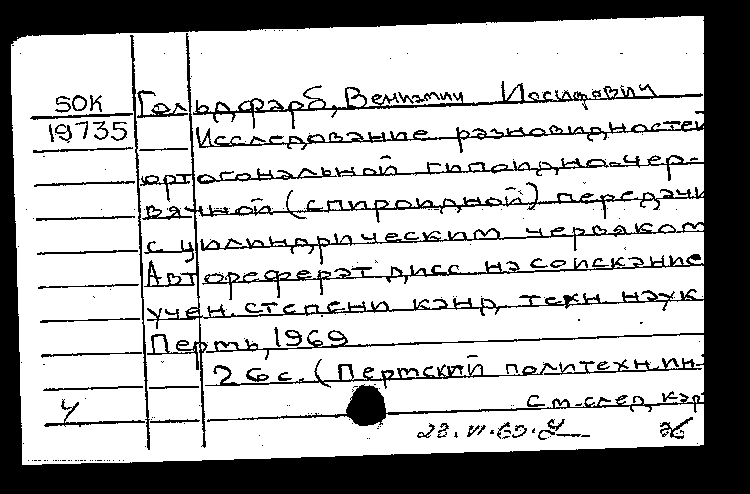 50К Гольдфарб, Вениамин Иосифович
19735 Исследование разновидностей
ортогональной гипоидно-чер-
вячной (спироидной) передачи
с цилиндрическим червяком
Автореферат дисс. на соискание
учен. степени канд. техн. наук
Пермь, 1969
26 с. (Пермский политехн. ин-
У см. след. кар